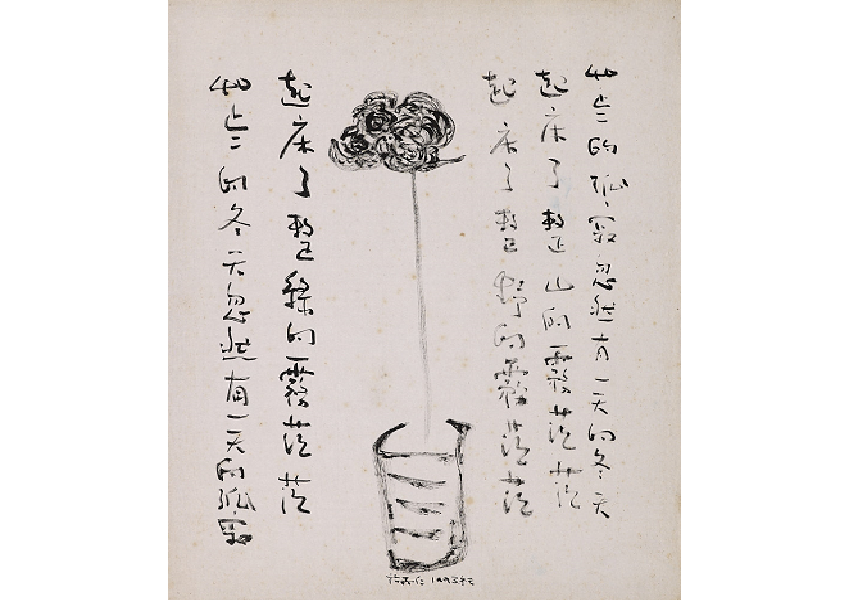 的孤寂忽然有一天的冬天
起床了整山的霧茫茫
起床了整野的霧茫茫
起床了整的霧茫茫
的冬天忽然有一天的孤寂